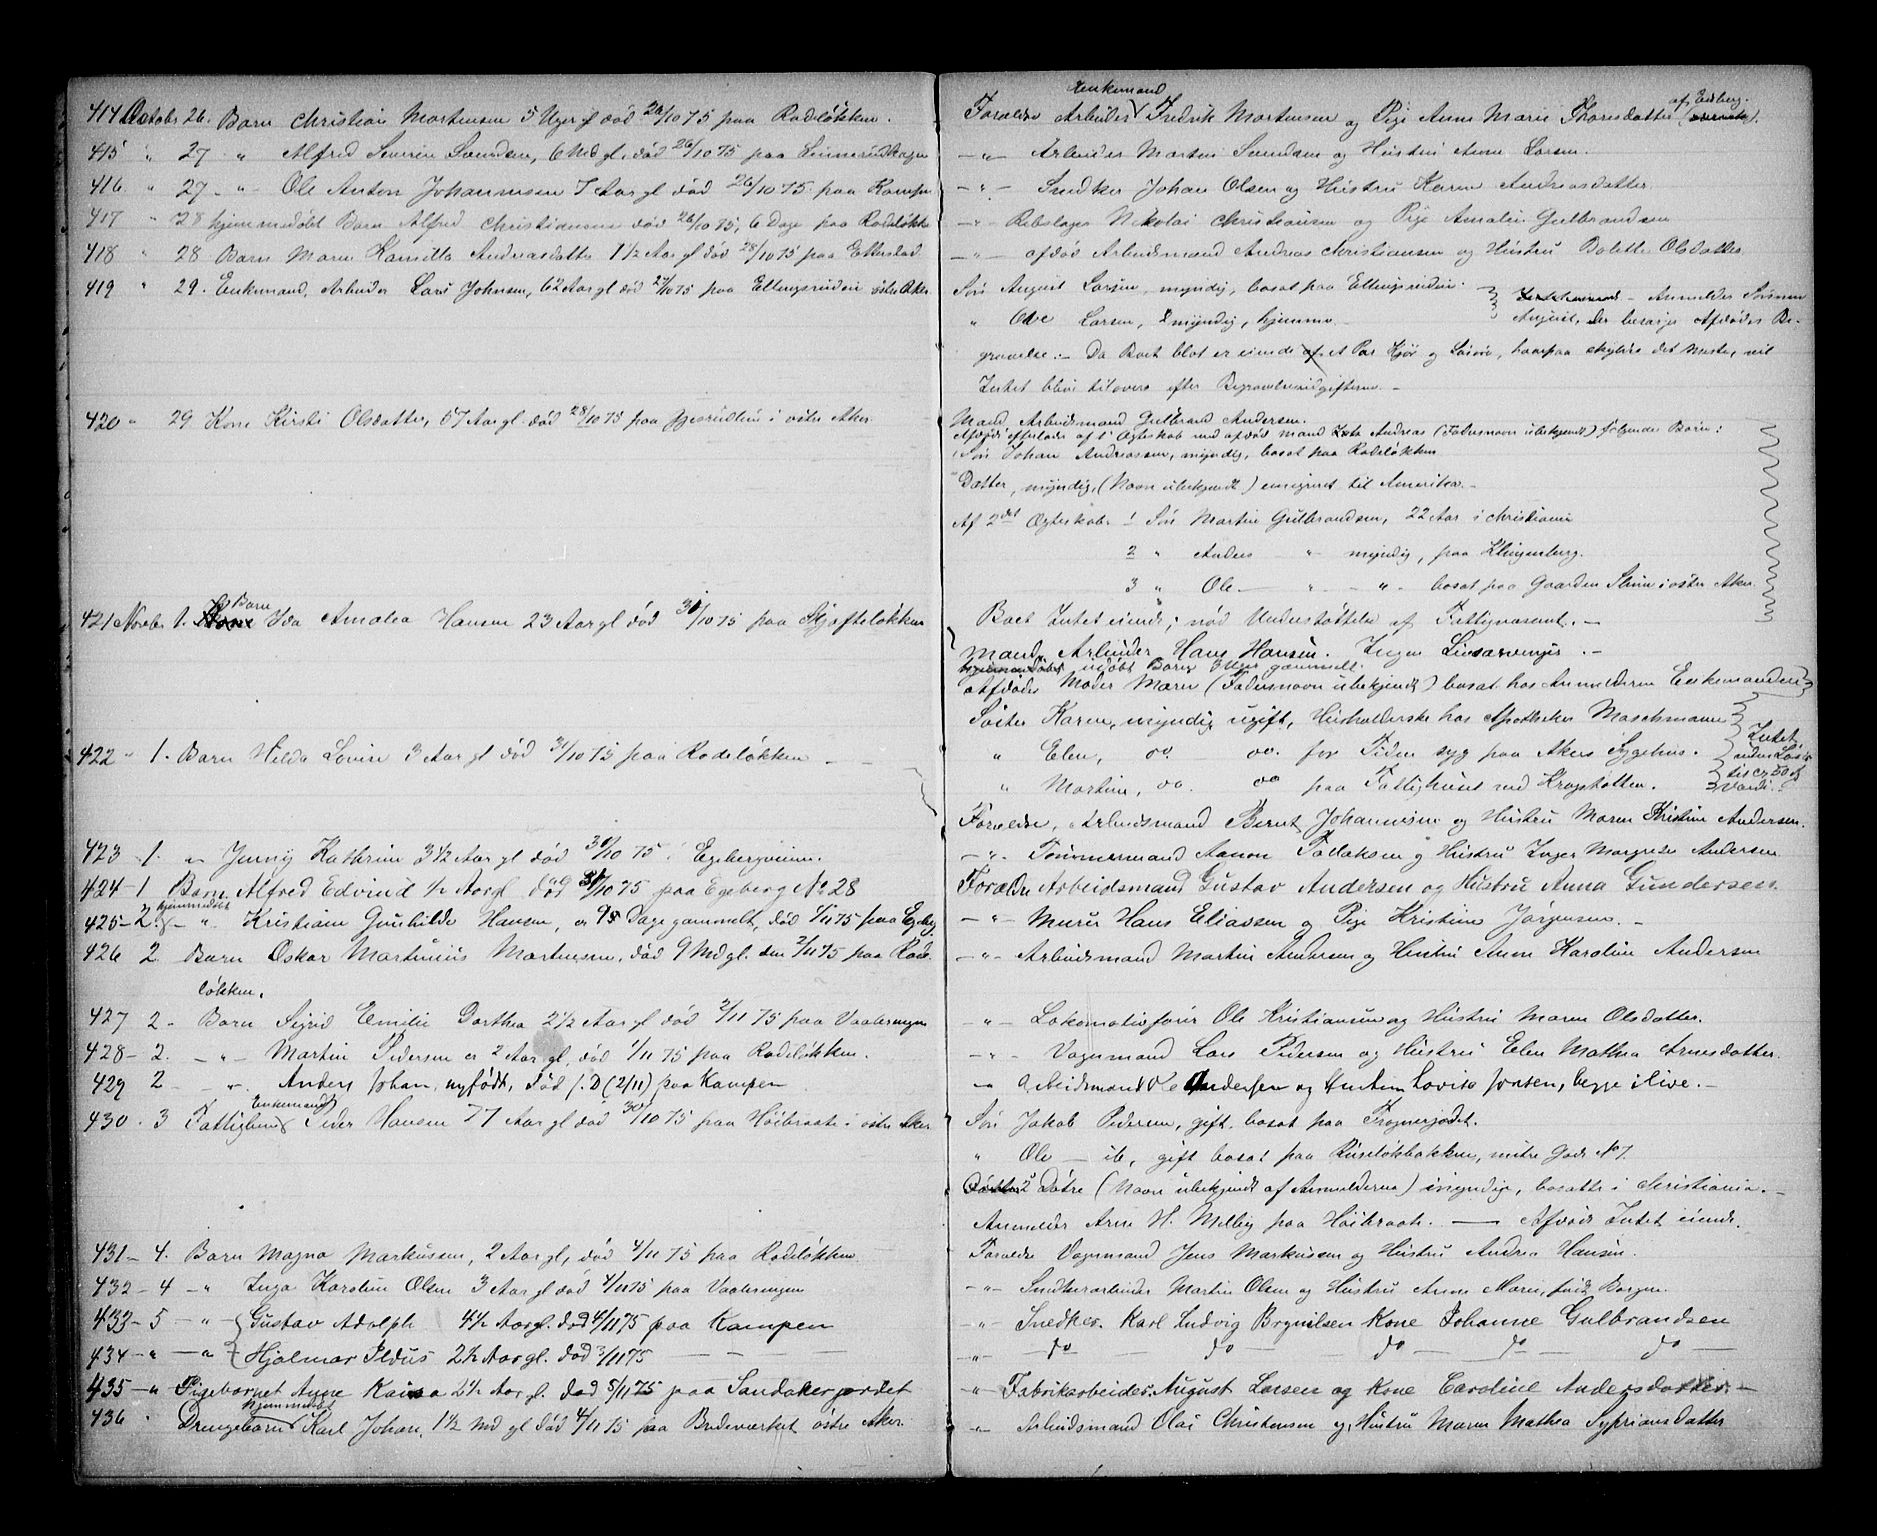 414 October 26. Barn Christian Mortensen 5 Uger gl død 26/10 75 paa Rodeløkken.
415 " 27 " Alfred Severin Svendsen, 6 Mdgl. død 26/10 75 paa
416 " 27 - " - Ole Anton Johannesen 7 Aar gl død 26/10 75 paa Kampen
417 " 28 hjemmedøbt Barn Alfred Christiansen død 26/10 75, 6 Dage paa Rodeløkk
418 " 28 Barn Maren Kamilla Andreasdatter 1 1/2 Aar gl død 28/10 75 paa Etterstad
419 " 29. Enkemand, Arbeider Lars Johnsen, 62 Aar gl død 27/10 75 paa Ellingsrudeie østre Aker.
420 " 29 Kone Kirsti Olsdatter, 57 Aar gl. død 28/10 75 paa i østre Aker.
Barn
421 Novebr 1. Kone Ida Amalea Hansen 23 Aar gl død 31/10 75 paa Skjefteløkken
422 " 1. Barn Hilda Lovise 3 Aar gl død 31/10 75 paa Rodeløkken
423 - 1. " Jenny Kathrine 3 1/2 Aar gl død 30/10 75 i Egebergveien.
424 - 1 Barn Alfred Edvind 1/2 Aar gl død 31/10 75 paa Egeberg No 28
hjemmedøbt
425 - 2. - " Kristiane Gunhilde Hansen, er 95 Dage gammelt, død 1/11 75 paa Egebg
426 2. Barn Oskar Martinius Martinsen, død 9 Mdgl. den 2/11 75 paa Rode-
løkken.
427 2 - Barn Sigrid Emilie Dorthea 2 1/2 Aar gl død 2/11 75 paa Vaalerengen
428 - 2. - " - Martin Pedersen er 2 Aar gl. død 1/11 75 paa Rodeløkken.
429 2 - " Anders Johan, nyfødt, død f. D (2/11) paa Kampen
Enkemand
430 . 3 Fattiglem Peder Hansen 77 Aar gl død 30/10 75 paa Høibraate i østre Aker
431 - 4. Barn Magna Markussen, 2 Aar gl, død 4/11 75 paa Rodeløkken.
432 - 4 - " Inga Karoline Olsen 3 Aar gl død 4/11 75 paa Vaalerengen
433 - 5 - " - Gustav Adolph 4 1/2 Aar gl. død 4/11 75 paa Kampen
434 - " - " Hjalmar Ildus 2 1/2 Aar gl. død 3/11 75
435 - " Pigebarnet Anne Kaisa 2 1/2 Aar gl. død 5/11 75 paa Sandakerjordet
hjemmedøbt
436 " Drengebarn Karl Johan, 1 1/2 Md gl død 4/11 75 paa østre Aker.
Enkemand af Eidsberg.
Forældre Arbeider Fredrik Mortensen og Pige Anne Marie Thoresdatter
- " - Arbeider Martin Svendsen og Hustru Anne Larsen.
- " - Snedker Johan Olsen og Hustru Karen Andreasdatter
- " - Rebslager Nikolai Christiansen og Pige Amalie Gulbrandsen
- " - afdød Arbeidsmand Andreas Christiansen og Hustru Bolette Olsdatter.
Søn August Larsen, myndig, bosat paa Ellingsrudeie. Anmelder Sønnen
" Ole Larsen, myndig, hjemme August, der besørger Afdødes Be-
gravelse. - Da Boet blot er eiende et Par Kjør og Løsøre, hvorpaa skyldes det meste, vil
Intet blive tilovers efter Begravelsesudgifterne. -
Mand Arbeidsmand Gulbrand Andersen.
Afdøde efterlader af 1' Ægteskab med afdød Mand Andreas (Fadersnavn ubekjendt) følgende Børn:
Søn Johan Andreassen, myndig, bosat paa Rodeløkken
Datter, myndig, (Navn ubekjendt) emigreret til Amerika. -
Af 2det Ægteskab. 1 Søn Martin Gulbrandsen, 22 Aar i Christiania
2 " Anders - " - myndig, paa Klingenberg.
3 " Ole - " - " - bosat paa Gaarden i østre Aker
Boet Intet eiende; nød Understøttelse af Fattigvæsenet. -
Mand, Arbeider Hans Hansen. Ingen Livsarvinger. -
udøbt Barn 3 Uger gammelt.
Afdødes Moder Maren (Fadersnavn ubekjendt) bosat hos Anmelderen Enkemanden
Søster Karen, myndig ugift, Husholderske hos Apotheker Maschmann
" Elen, do. do. for Tiden syg paa Akers Sygehus. Intet
" Martine, do. do paa Fattighuset ved Krogstøtten.
Forældre, Arbeidsmand Bernt Johannesen og Hustru Maren Kristine Andersen.
- " - Tømmermand Aanon Tollaksen og Hustru Inger Margrete Andersen
Forældre Arbeidsmand Gustav Andersen og Hustru Anna Gundersen.
- " - Murer Hans Eliassen og Pige Kristine Jørgensen. -
- " - Arbeidsmand Martin Andersen og Hustru Anne Karoline Andersen
- " - Lokomotivfører Ole Kristiansen og Hustru Maren Olsdatter.
- " - Vognmand Lars Pedersen og Hustru Elen Mathea Arnesdatter.
- " Arbeidsmand Ole Andersen og Hustru Lovise Jonsen, begge ilive. -
Søn Jakob Pedersen, gift, bosat paa Frognerjordet.
" Ole - ib, gift bosat paa Ruseløkbakken, mitre Gade No 7.
2 Døtre (Navn ubekjendt af Anmelderen) myndige, bosatte i Christiania. -
Anmelder Arne H. Melby paa Høibraat. - Afdøde Intet eiende.
Forældre Vognmand Jens Markussen og Hustru Andrea Hansen.
- " - Snedkerarbeider Martin Olsen og Hustru Anne Marie, født Borgen.
- " - Snedker. Karl Ludvig Brynilsen Kone Johanne Gulbrandsen
- " - do do do do do
- " Fabrikarbeider August Larsen og Kone Caroline Andersdatter. -
- " - Arbeidsmand Olai Christensen og Hustru Maren Mathea Sypriansdatter